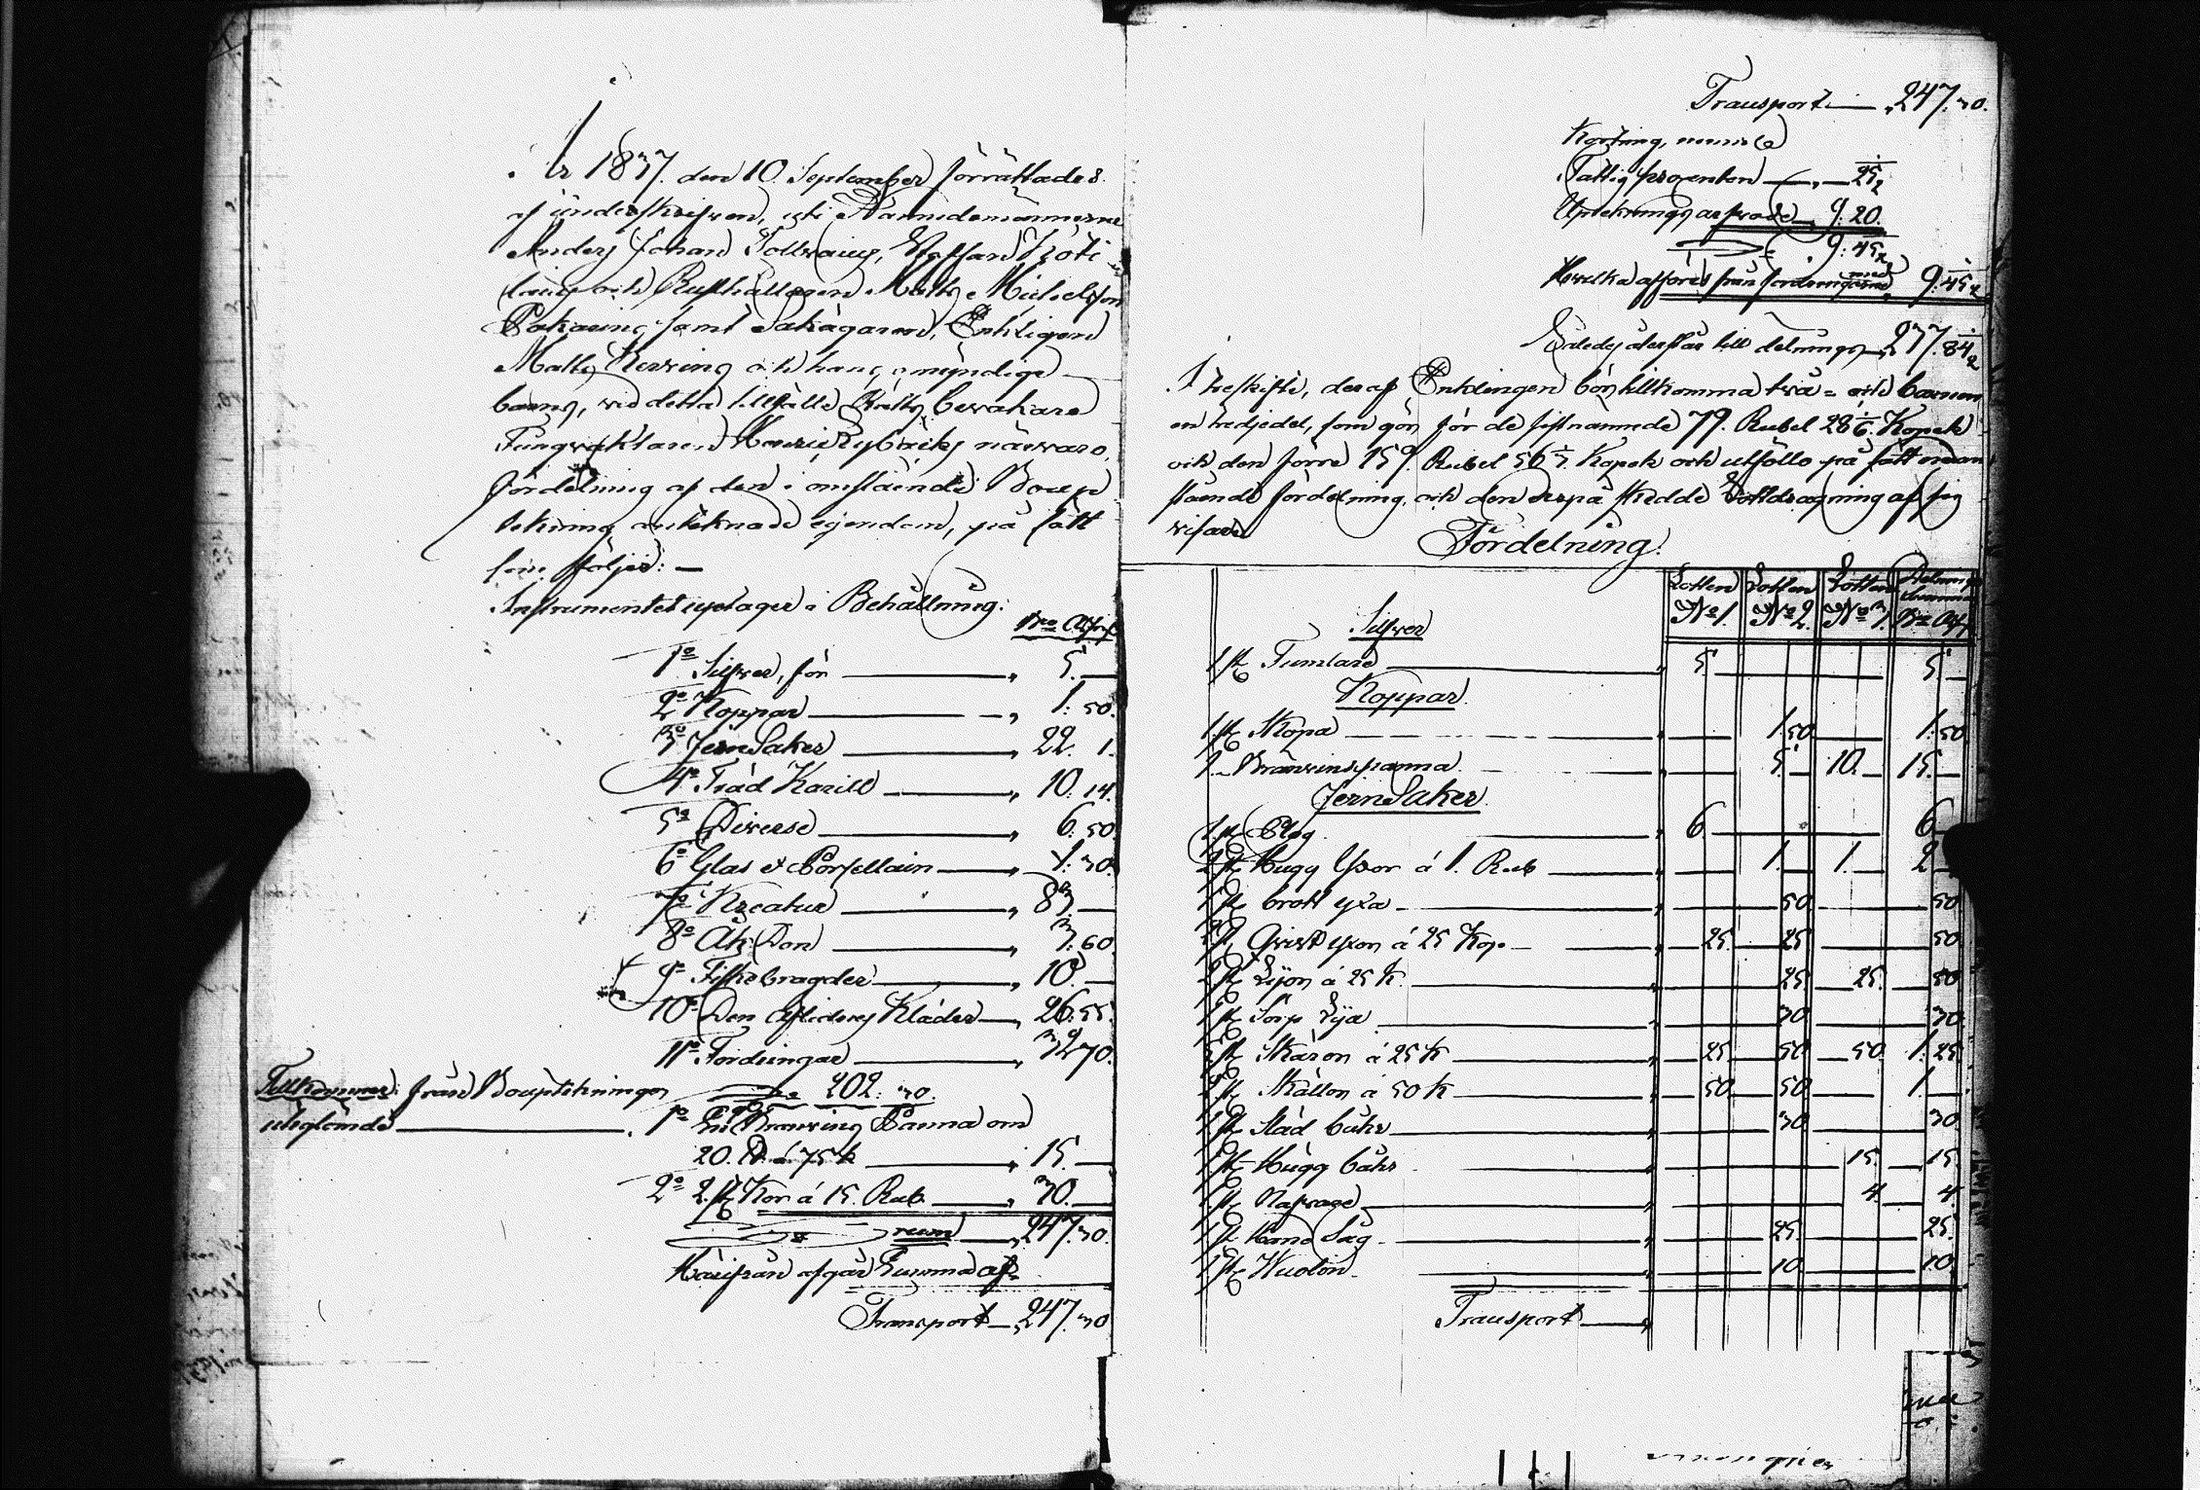 År 1837. den 10. September förrättades
af underskrifven, uti Nämndemännerne
Anders Johan Tollvains, Staffan
och Rusthållaren Matts Michelsson
Pakarins samt Sakägaren, Enklingen
Matts Kervinens och hans omyndige
barns, vid detta tillfälle Rätts bevakare
närvaro,
fördelning af den i omstående Boup
tekning anteknade egendom, på sätt
som följer: —
Instrumentet uptager i Behållning:
Bco Ass
1o Silfver, för — " 5. —
2o Koppar — " 1. 50.
3o Jern Saker — " 22. 1.
4o Träd Kärill — " 10. 14.
5o Diverse — " 6. 50
6o Glas et Porsellain — " 1. 30.
7o Kreatur — " 83. —
8o Åk Don — " 3. 60
9o Fiskebragder — " 10. —
10o Den Aflidnes Kläder — " 26. 55.
11o Fordringar — " 32 70.
Tillkommer: från Bouptekningen — 202. 30.
uteglömde — 1o En Bränvins Panna om
20. ℔ á 75 k — " 15. —
2o 2. st Kor á 15. Rub. — " 30. —
— 247. 30.
Härifrån afgår Summa af
Transport — " 247. 30
Transport — " 247. 30.
Kortning, 
Fattig prosenten — " — 25½
Uptekningsarfvode — 9. 20.
9. 45½
Hvilka afföres från fordringarne med 9. 45½
Således återstår till delning — 237. 84½
I treskifte, deraf Enklingen bör tillkomma två- och barnen
en tredjedel, som gör för de sistnämnde 79. Rubel 28 Kopek
och den förre 158. Rubel 56 Kopek och utföllo på sätt nedan
stående fördelning, och den derpå skedde Lottdragning af sig
visar
Fördelning.
Lotten No 1. Lotten No 2. Lotten No 3. Delnings Summa Bco Ass
Silfver
1. st Tumlare — " 5. — 5. —
Koppar
1. st Skopa — 1. 50 — 1. 50
1. — Bränvinspanna — 5. — 10. — 15. —
Jern Saker
1. st Plog — " 6 — 6 —
2 st Hugg Yxor á 1. Rub — 1. — 1. — 2
1 st brott yxa — 50 — 50
2 st yxor á 25 Kop. — 25. — 25 — 50
2 st Lijor á 25 K. — 25 — 25. — 50
1 st Sörp Lija — 30 — 30
5 st Skäror á 25 K — 25 — 50 — 50 1. 25
2 st Skällor á 50 K — 50 — 50 — 1. —
1 st Städ — 30 — 30
1 st Hugg — 15. — 15.
1 st Nafvare — 4. — 4.
1 st Hand Såg — 25. — 25.
1 st — 10. — 10.
Transport —